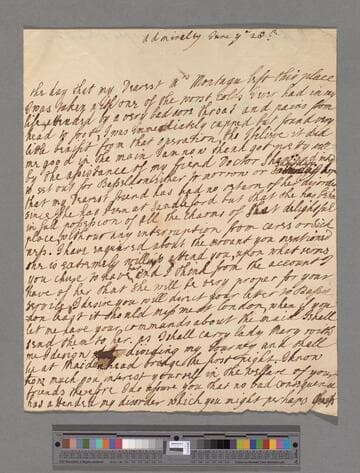 Admiralty June ye 28th
the day that my Dearest Mrs Montagu left this place
I was taken ill of one of the worst colds I ever had in my
life, attended by a very bad sore throat and pains from
head to foot, I was immediately cupped but found very
little benefit from that operation, tho I believe it did
me good in the main I am now thank God pretty well
by the assistance of my friend Doctor
to set out for to morrow or
that my Dearest friend has had no return of her disorder
since she has been at Sandleford but that she has been
in full possession of all the charms of that delightful
place, without any interruption from cares or sick
ness. I have enquired about the servant you mentioned
she is extremely willing to attend you, upon what terms
you chuse to have her and I think from the account I
have of her that she will be very proper for your
service, I desire you will direct your letter to
don lest it should miss me at London, when if you
let me have your commands about the maid I shall
send them to her. As I shall carry lady Mary with
me I design dividing my Journey and shall
lie at Maidenhead bridge the first night. I know
how much you interest yourself in the welfare of your
friends therefore I do assure you that no bad consequence
has attended my disorder which you might perhaps